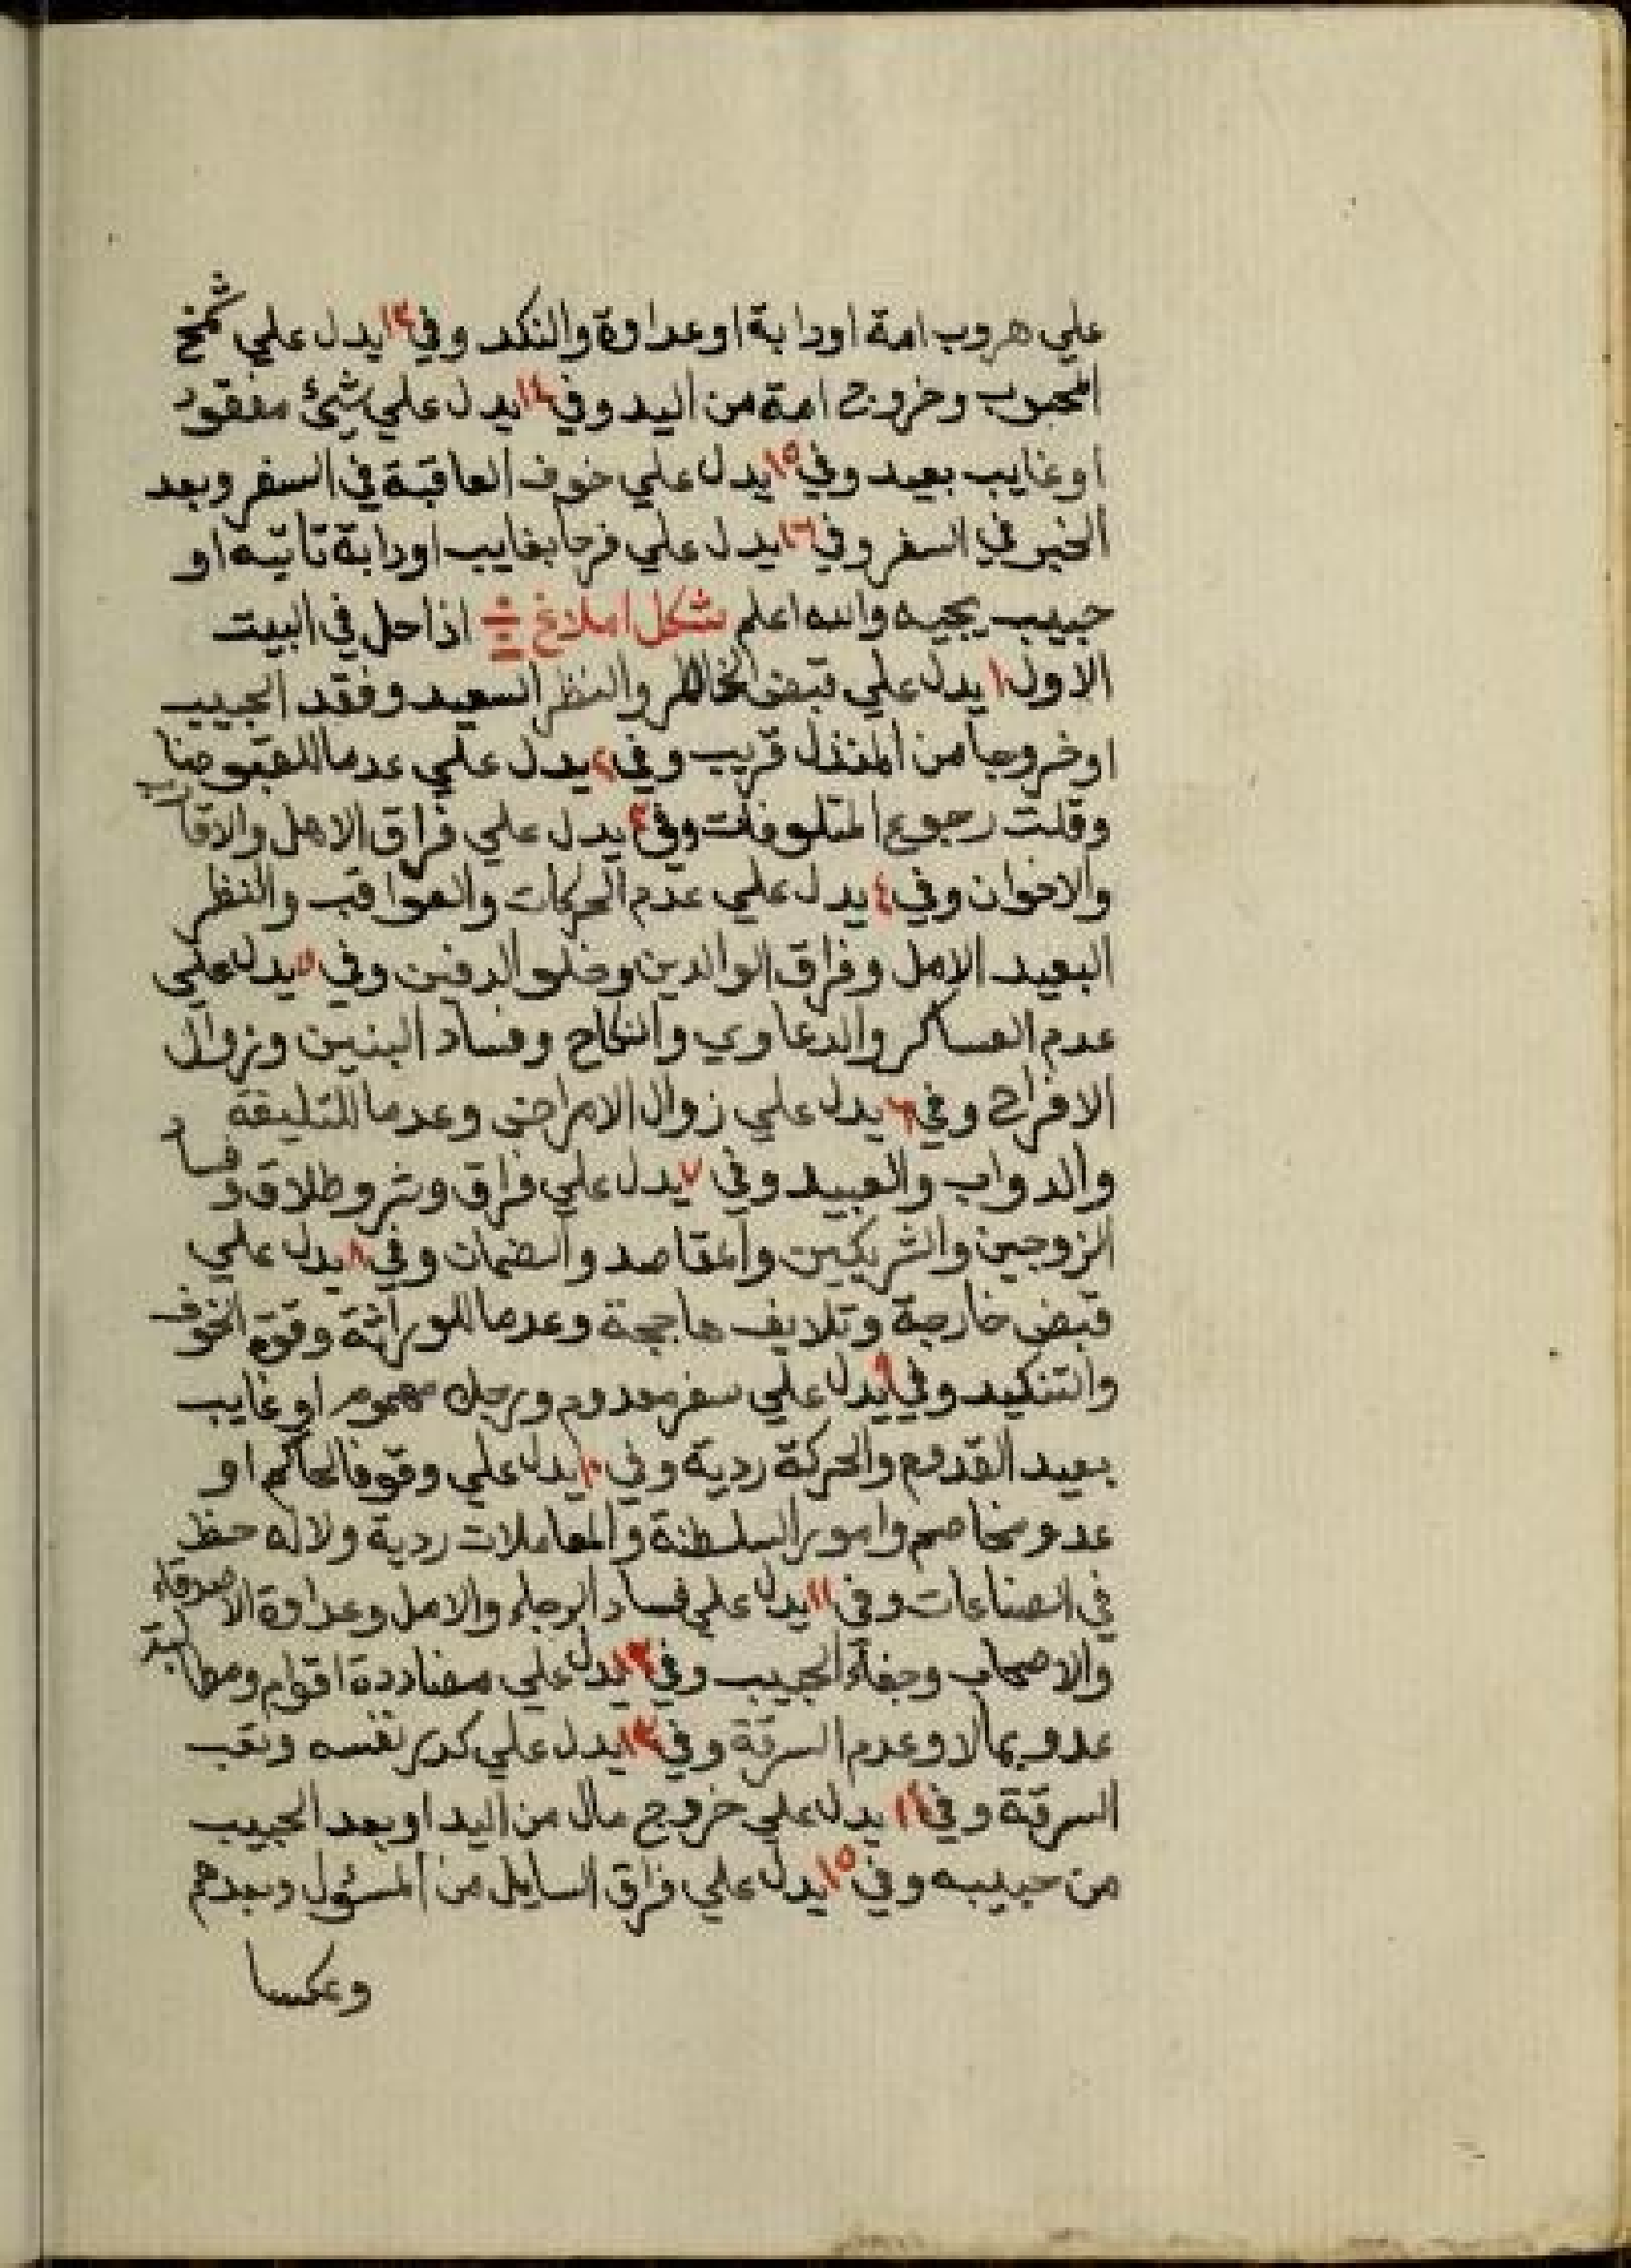 علي هروب امة اودابة اوعداوة والنكد وفي ١٣ يدل علي شمخ
المحبوب وخروج امة من اليد وفي ١٤ يدل علي شيئ مفقود
اوغايب بعيد وفي ١٥ يدل علي خوف العاقبة في السفر وبعد
الخبر في السفر وفي ١٦ يدل علي فرحا بغايب اودابة تاتيه او
حبيب يجيه والله اعلم شكل املاغ اذا حل في البيت
الاول ١ يدل علي قبض الخاطر والنظر السعيد وفقد الحبيب
اوخروجا من المنذل قريب وفي ٢ يدل علي عدما للمقبوضات
وقلت رجوع المتلوفات وفي ٣ يدل علي فراق الاهل والاقارب
والاخوان وفي ٤ يدل علي عدم الحركات والعواقب والنظر
البعيد الامل وفراق الوالدين وخلو الدفين وفي ٥ يدل علي
عدم العساكر والدعاوي والنكاح وفساد البنين وزوال
الافراح وفي ٦ يدل علي زوال الامراض وعدما للتليقة
والدواب والعبيد وفي ٧ يدل علي فراق وشر وطلاق وفساد
الزوجين والشريكين والمقاصد والضمات وفي ٨ يدل علي
قبض خارجة وتلايف حاججة وعدما للوراثة وقوة الخوف
والتنكيد وفي ٩ يدل علي سفر معدوم ورجل مهموم او غايب
بعيد القدوم والحركة ردية وفي ١٠ يدل علي وقوف الحاكم او
عدو مخاصم وامور السلطنة والمعاملات ردية ولاله حظ
في الصناعات وفي ١١ يدل علي فساد الرجاء والامل وعداوة الاصدقاء
والاصحاب وجفاء الحبيب وفي ١٢ يدل علي مضاددة اقوام ومطالبة
عدو بمالا وعدم السرقة وفي ١٣ يدل علي كدر نفسه وتعب
السرقة وفي ١٤ يدل علي خروج مال من اليد اوبعد الحبيب
من حبيبه وفي ١٥ يدل علي فراق السايل من المسئول وبعدهم
وعكسا